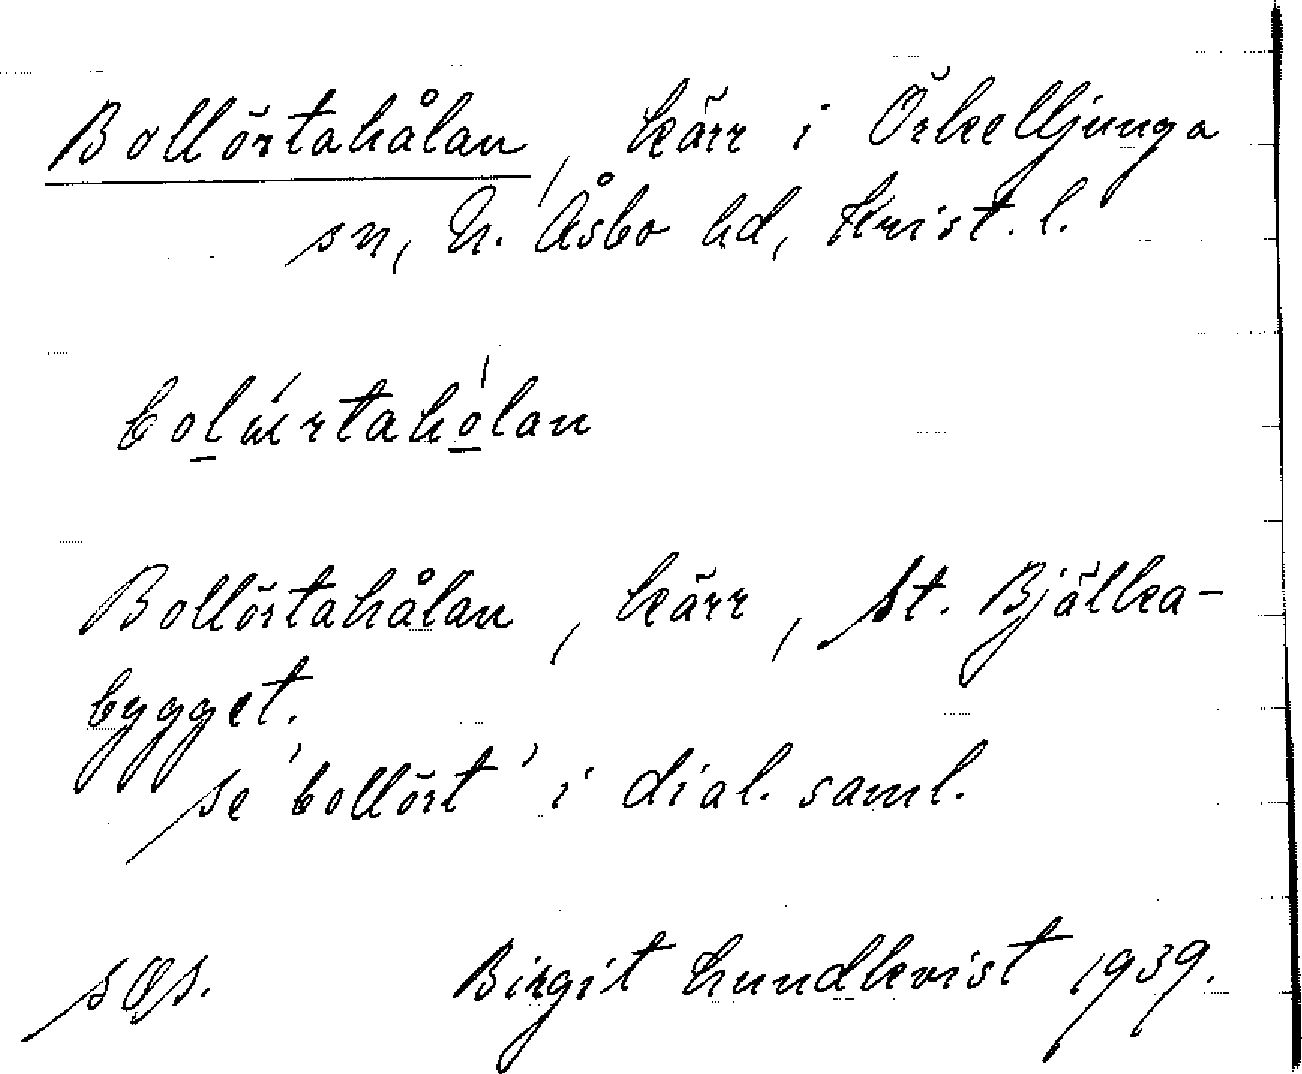 Bollörtahålan, kärr i Örkelljunga
sn, N. Åsbo hd, Krist. l.
Bollörtahålan, kärr, St. Bjälka-
bygget.
se 'bollört' i dial. saml.
Birgit Lundkvist 1939.